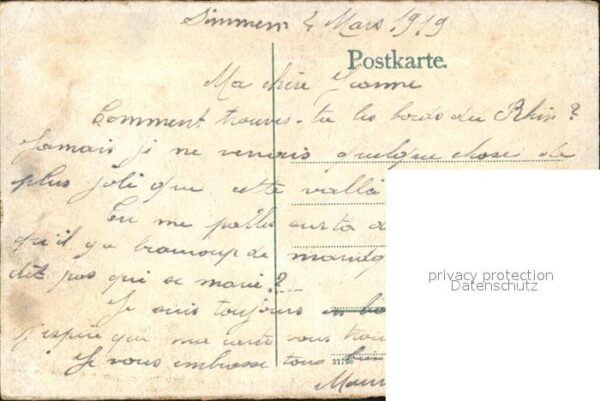 Simmern 4 Mars 1919
Postkarte.
Ma chère Jeanne
Comment trouves-tu les bords du Rhin?
Jamais je ne verrais quelque chose de
plus joli que cette vallé
Tu me parles sur ta
qu'il y a beaucoup de
dit pas qui se marie?
Je suis toujours
j'espère que ma carte vous trou
Je vous embrasse tous
31796
privacy protection
Datenschutz